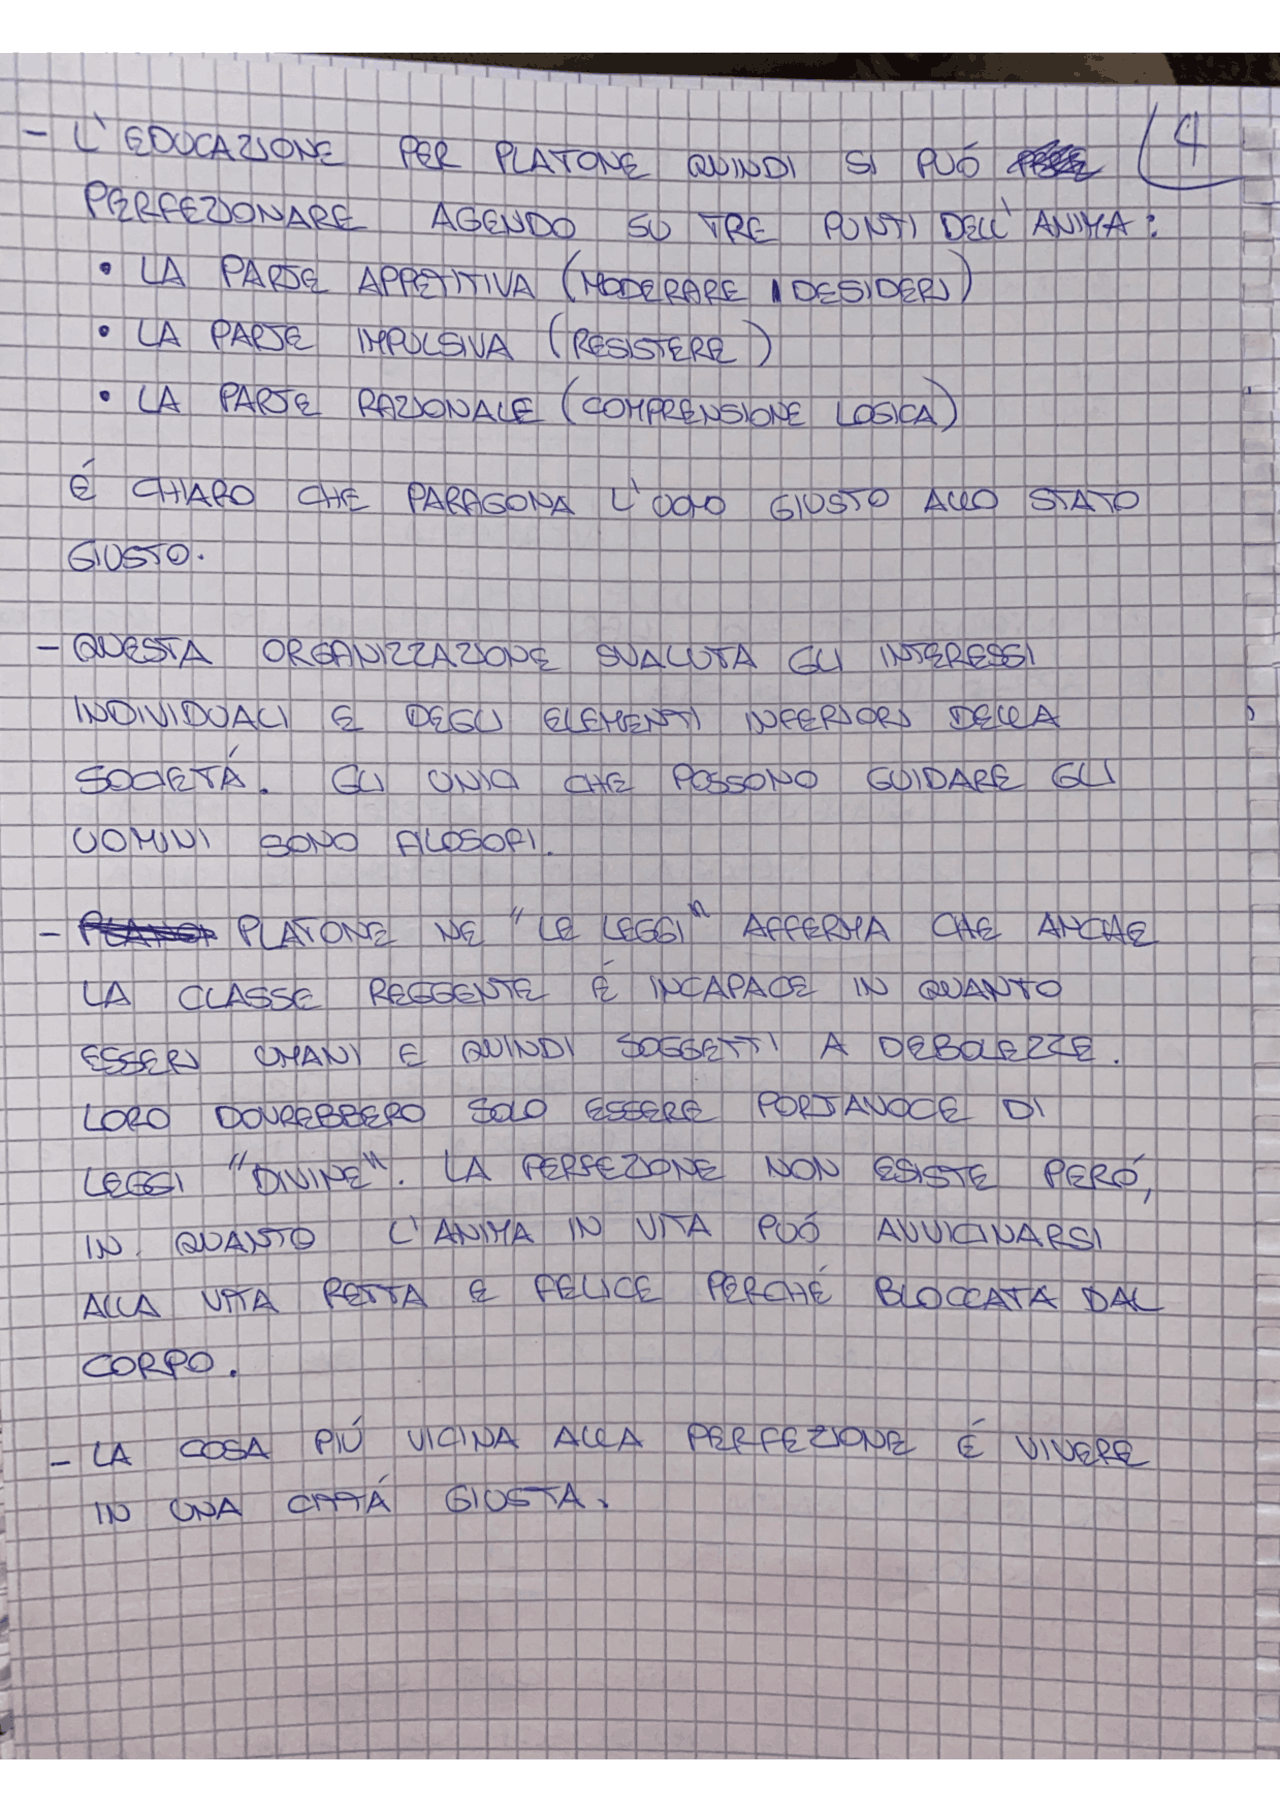 - L'EDUCAZIONE PER PLATONE QUINDI SI PUÓ
4
PERFEZIONARE AGENDO SU TRE PUNTI DELL'ANIMA:
• LA PARTE APPETITIVA (MODERARE I DESIDERI)
• LA PARTE IMPULSIVA (RESISTERE)
• LA PARTE RAZIONALE (COMPRENSIONE LOGICA)
É CHIARO CHE PARAGONA L'UOMO GIUSTO ALLO STATO
GIUSTO.
- QUESTA ORGANIZZAZIONE SVALUTA GLI INTERESSI
INDIVIDUALI E DEGLI ELEMENTI INFERIORI DELLA
SOCIETÁ. GLI UNICI CHE POSSONO GUIDARE GLI
UOMINI SONO FILOSOFI.
- PLATONE NE "LE LEGGI" AFFERMA CHE ANCHE
LA CLASSE REGGENTE É INCAPACE IN QUANTO
ESSERI UMANI E QUINDI SOGGETTI A DEBOLEZZE.
LORO DOVREBBERO SOLO ESSERE PORTAVOCE DI
LEGGI "DIVINE". LA PERFEZIONE NON ESISTE PERÓ,
IN QUANTO L'ANIMA IN VITA PUÓ AVVICINARSI
ALLA VITA RETTA E FELICE PERCHÉ BLOCCATA DAL
CORPO.
- LA COSA PIÚ VICINA ALLA PERFEZIONE É VIVERE
IN UNA CITTÁ GIUSTA.